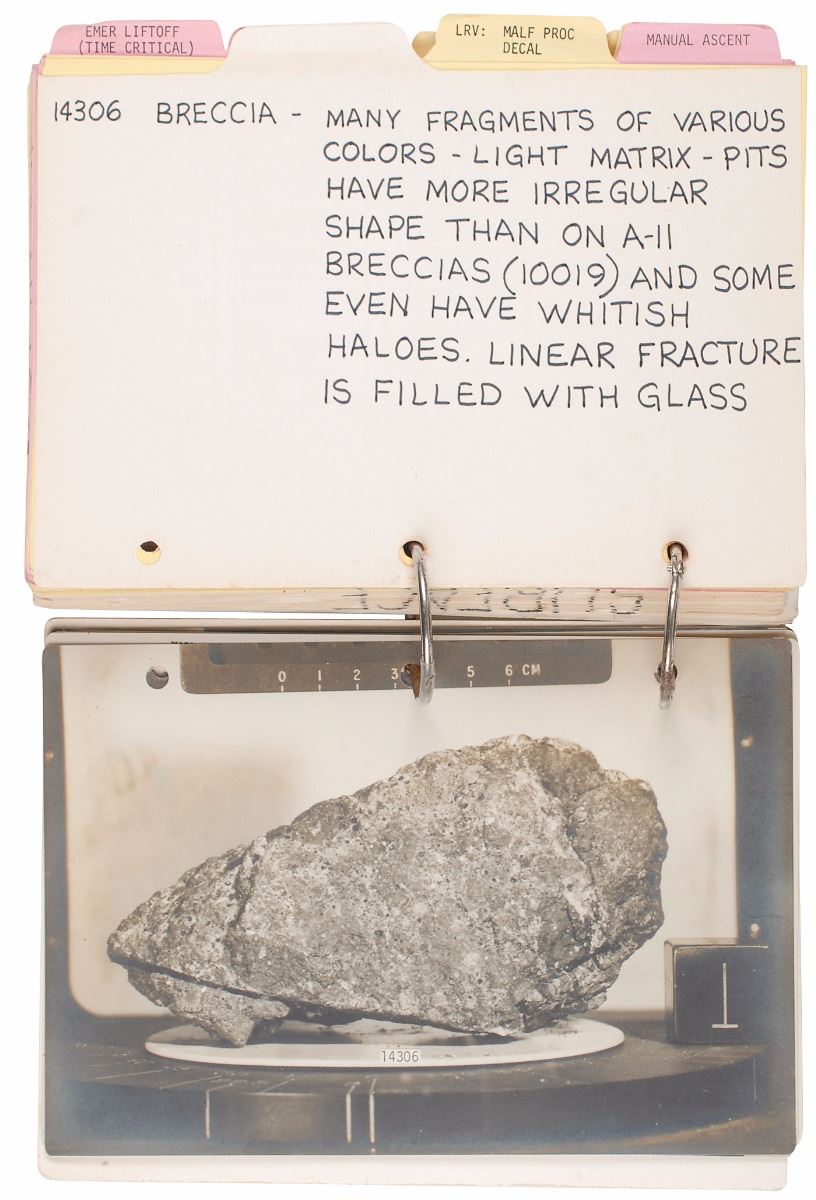 EMER LIFTOFF
(TIME CRITICAL)
LRV: MALF PROC
DECAL
MANUAL ASCENT
14306 BRECCIA - MANY FRAGMENTS OF VARIOUS
COLORS - LIGHT MATRIX - PITS
HAVE MORE IRREGULAR
SHAPE THAN ON A-11
BRECCIAS (10019) AND SOME
EVEN HAVE WHITISH
HALOES. LINEAR FRACTURE
IS FILLED WITH GLASS
0 1 2 3 5 6 CM
14306